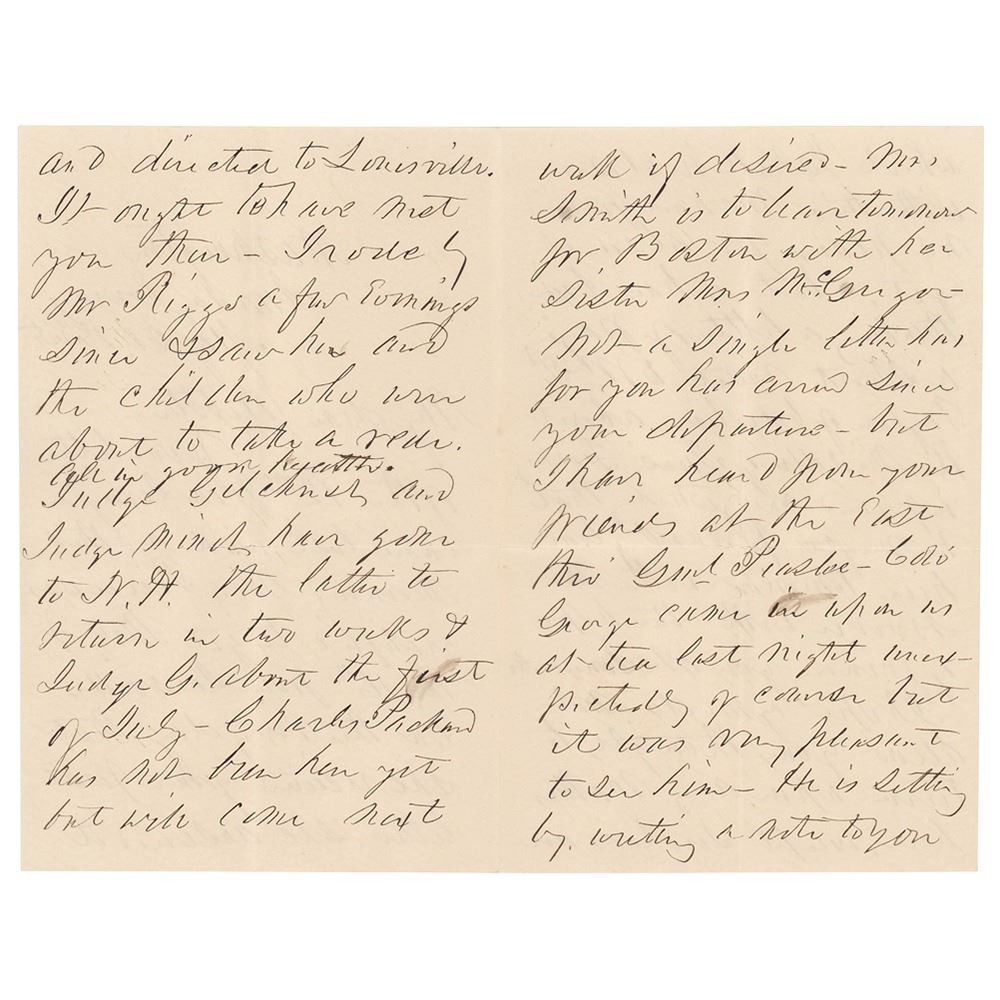 and directed to Louisville.
It ought to have met
you there – I rode by
Mr Riggs a few Evenings
since & saw her and
the children who were
about to take a ride.
all in good health.
Judge Gilchrist, and
Judge Minot, have gone
to N.H. the latter to
return in two weeks &
Judge G. about the first
of July – Charles Packard
has not been here yet
but will come next
week if desired – Mrs
Smith is to leave tomorrow
for Boston with her
Sister Mrs McGregor –
Not a single letter has
for you has arrived since
your departure – but
I have heard from your
friends at the East
thro' Genl. Peaslee – Colo
George came in upon us
at tea last night unex-
pectedly of course but
it was very pleasant
to see him – He is sitting
by, writing a note to you